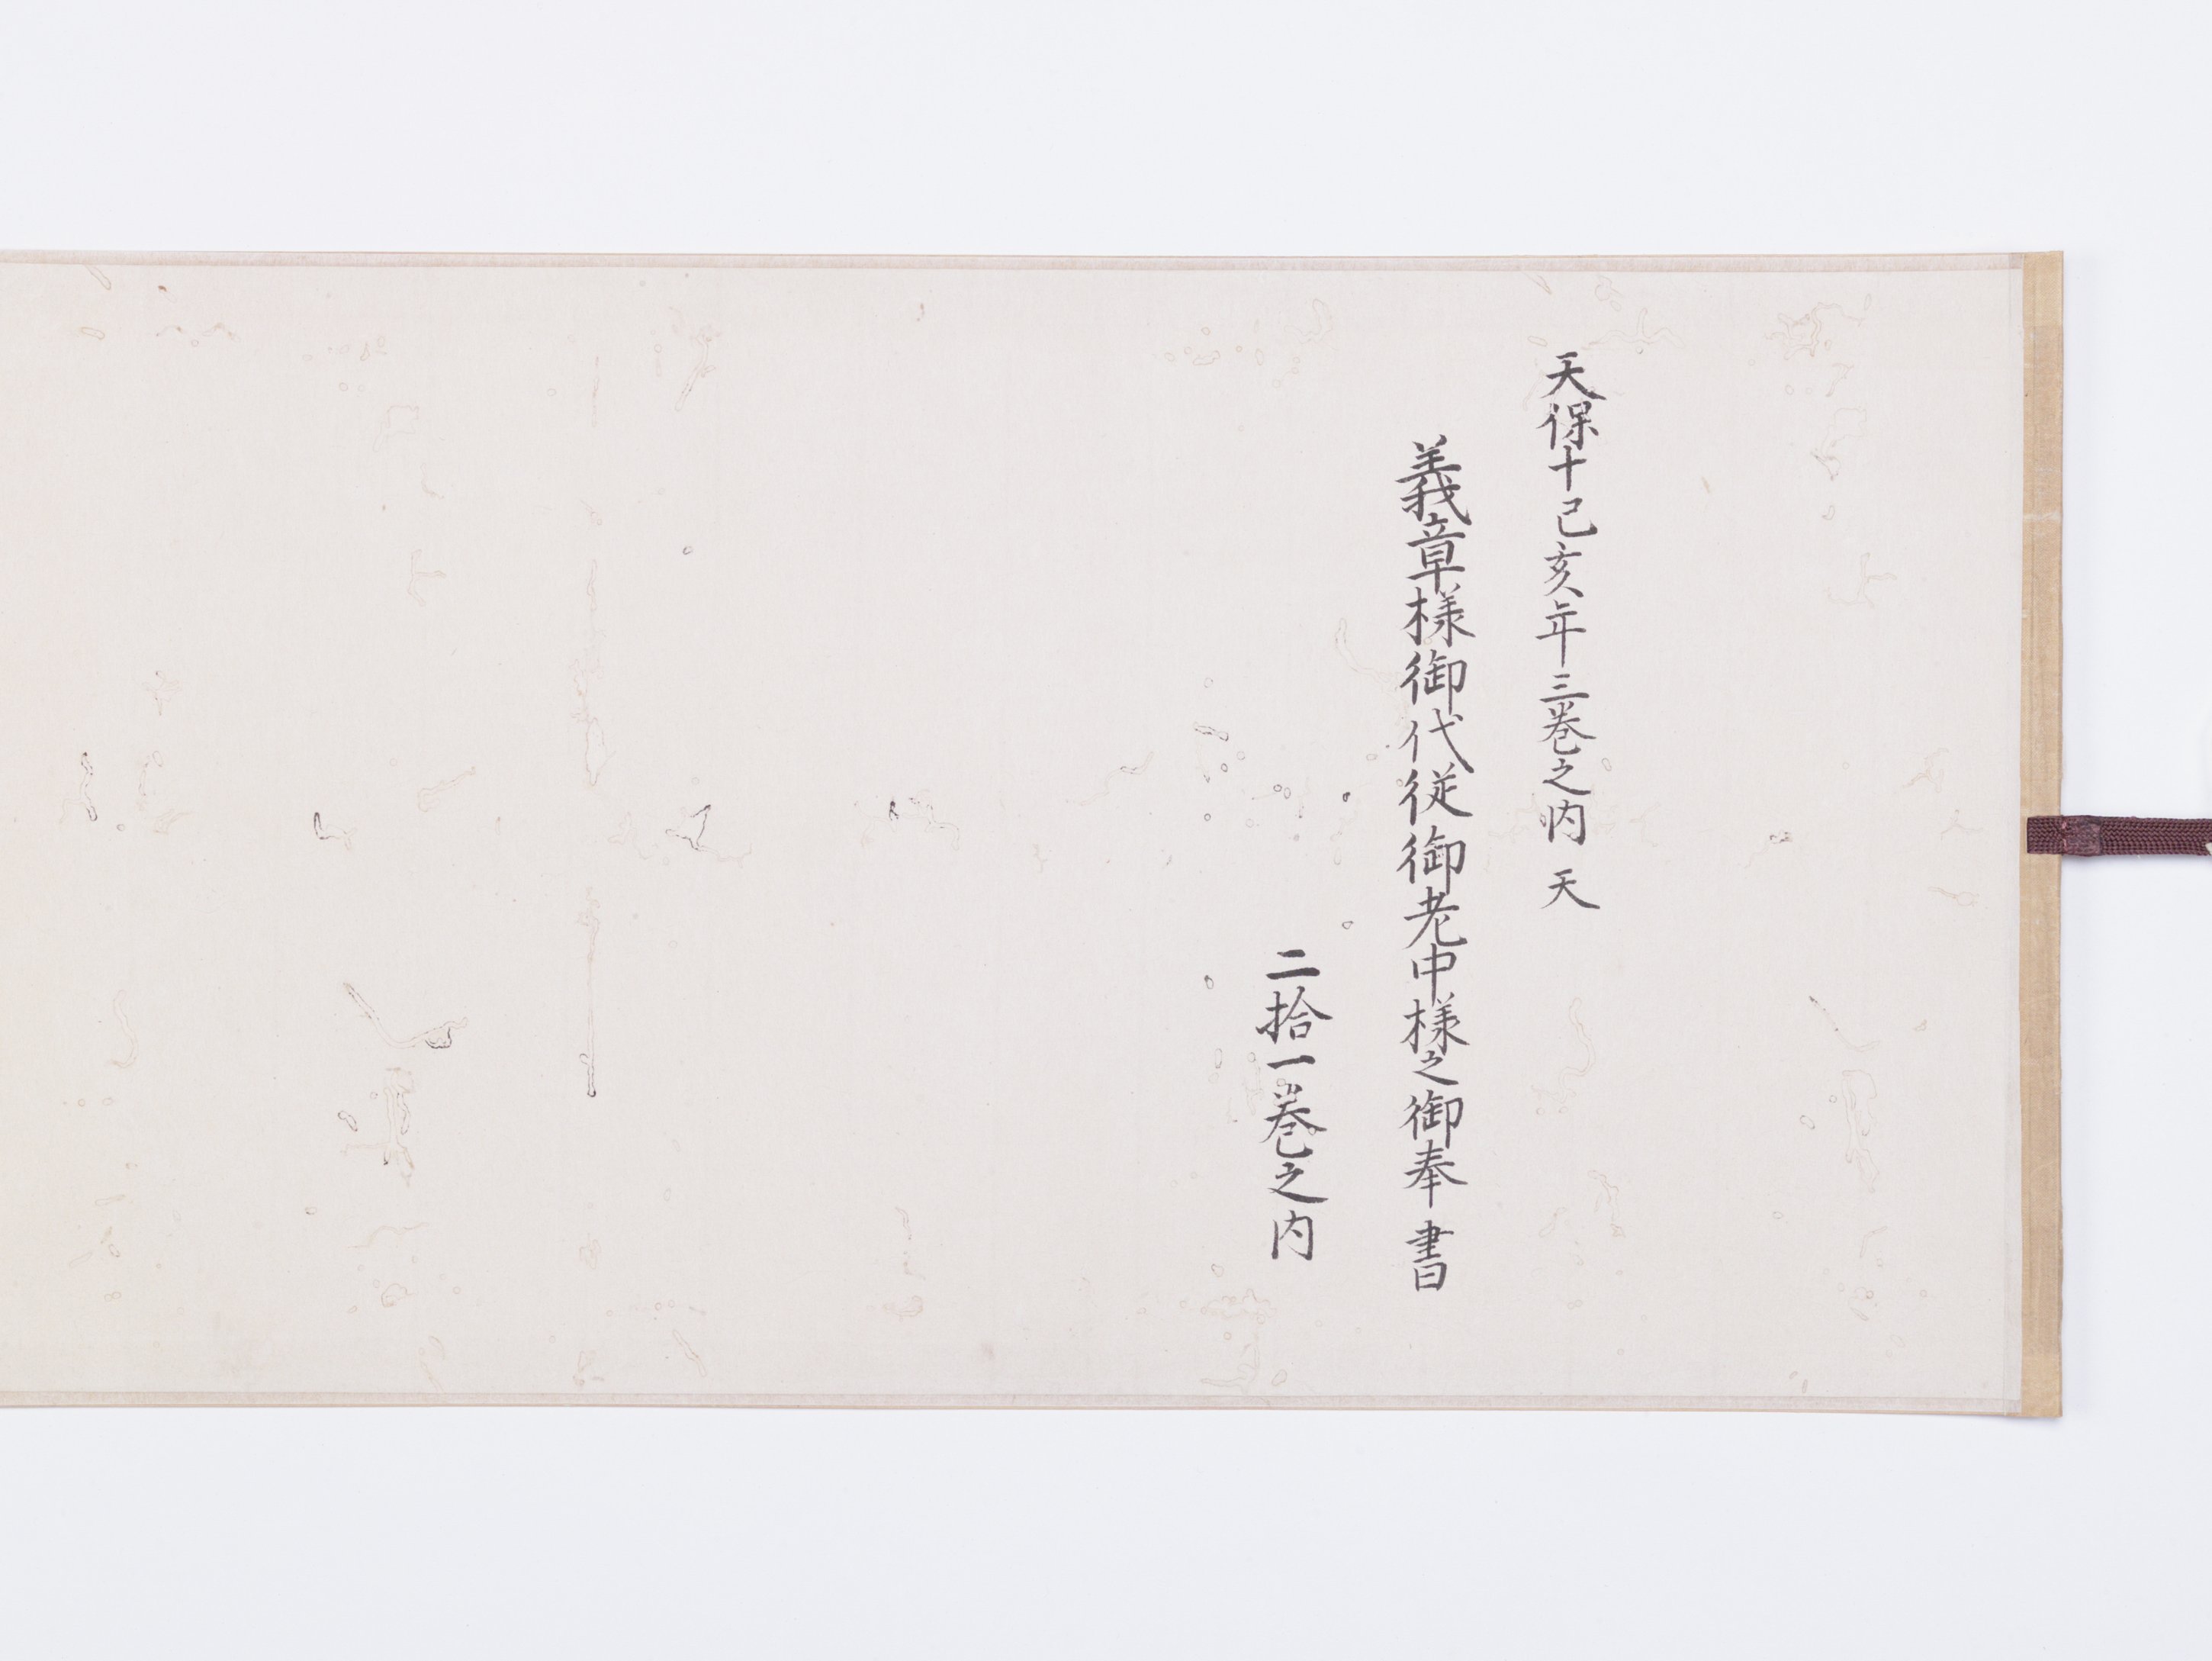 天保十己亥年三巻之内 天
義章様御代従御老中様之御奉書
二拾一巻之内